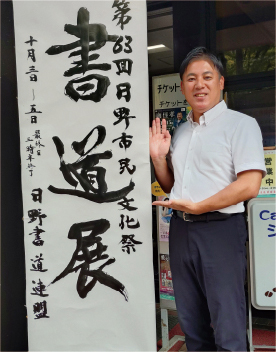 第63回日野市民文化祭
書道展
十月三日〜五日
最終日
三時半終了
日野書道連盟
チケット
チケット
営業中
Ca